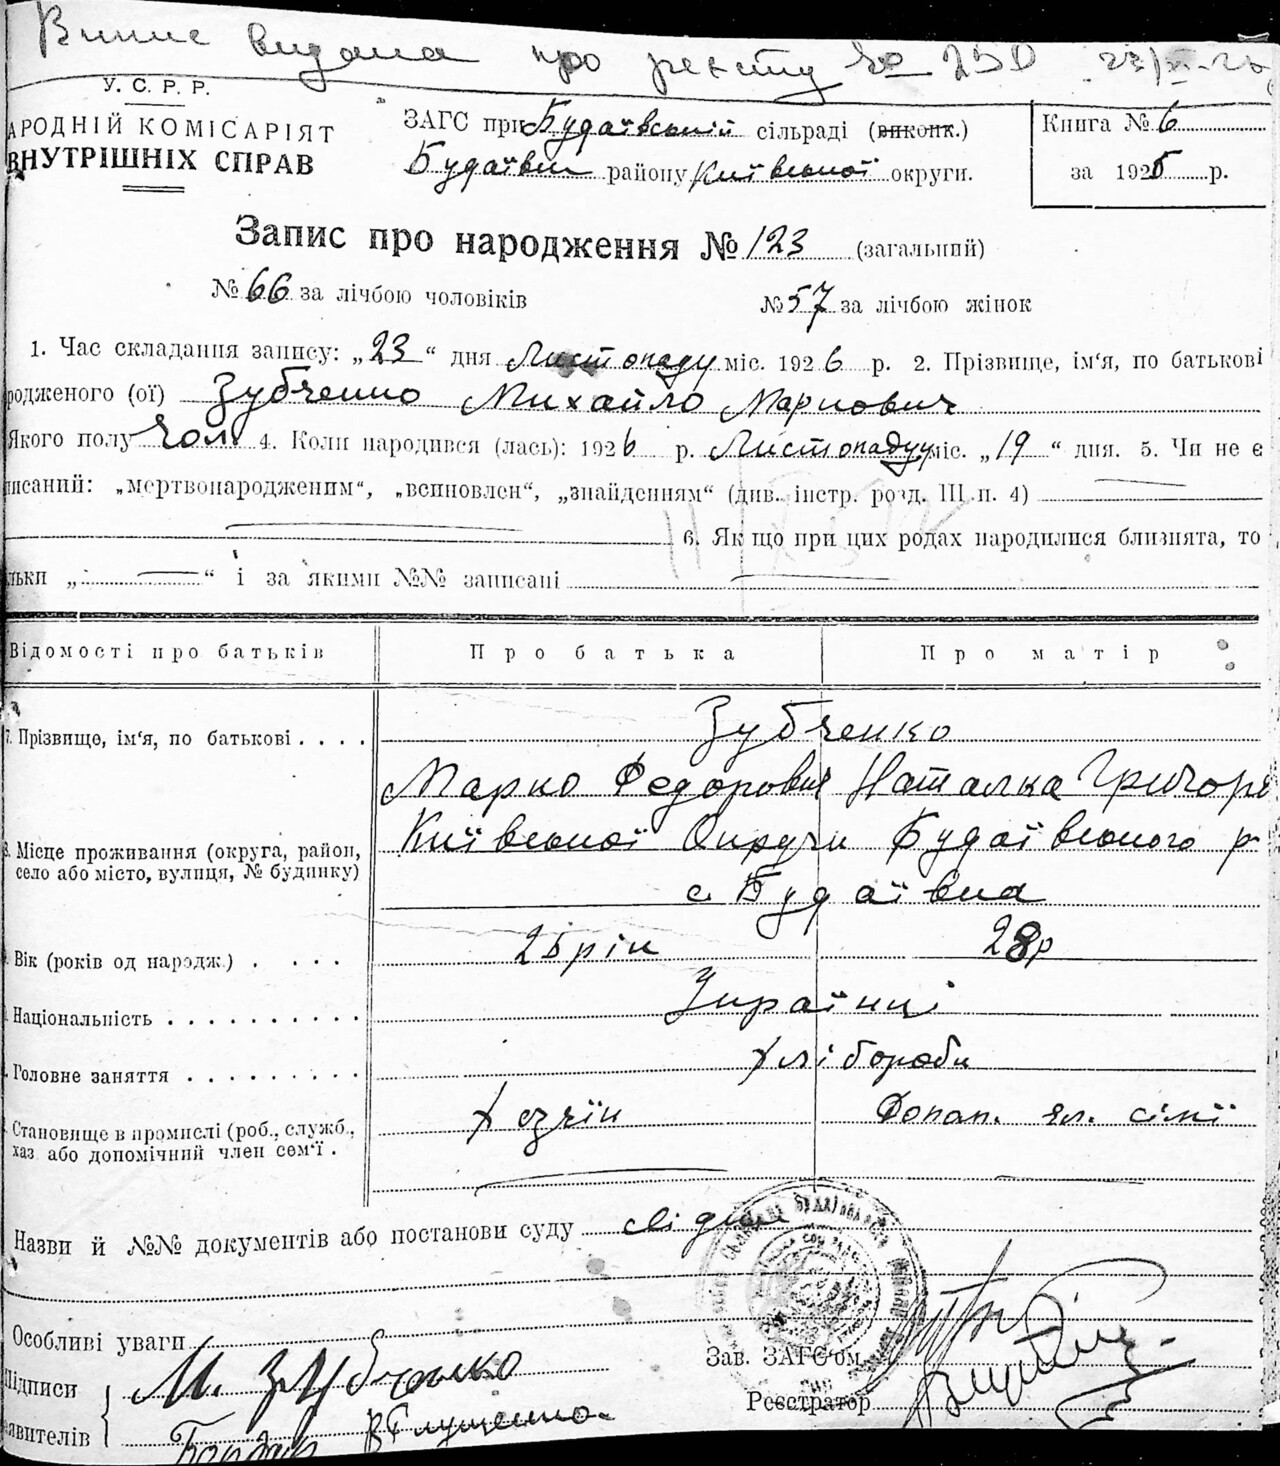 Випис видана про реєстру № 250 23/XI-26
У. С. Р. Р.
АРОДНІЙ КОМІСАРІЯТ
ВНУТРІШНІХ СПРАВ
ЗАГС при Будаївській сільраді (виконк.)
Будаївськ району Київської округи.
Книга № 6
за 1926 р.
Запис про народження № 123 (загальний)
№ 66 за лічбою чоловіків № 57 за лічбою жінок
1. Час складання запису: „23“ дня Листопаду міс. 1926 р. 2. Прізвище, ім'я, по батькові
родженого (ої) Зубченко Михайло Маркович
Якого полу Чол. 4. Коли народився (лась): 1926 р. Листопаду міс. „19“ дня. 5. Чи не є
писаний: „мертвонародженим“, „всиновлен“, „знайденням“ (див. інстр. розд. III п. 4)
6. Якщо при цих родах народилися близнята, то
льки „ “ і за якими №№ записані
Відомості про батьків Про батька Про матір
7. Прізвище, ім'я, по батькові . . . . Зубченко
Марко Федорович Наталка Григорв
Місце проживання (округа, район, село або місто, вулиця, № будинку) Київської Округи Будаївського р
с. Будаївка
Вік (років од народж.) . . . . 26 рік 28 р
Національність . . . . . . . . . . Українці
Головне заняття . . . . . . . . . хлібороби
Становище в промислі (роб., служб., хаз або допомічний член сем'ї . Хозяїн Допом. чл. сімї
Назви й №№ документів або постанови суду свідки
Особливі уваги
Підписи М. Зубченко
явителів Бондар В Глущенко.
Зав. ЗАГС'ом
Реєстратор